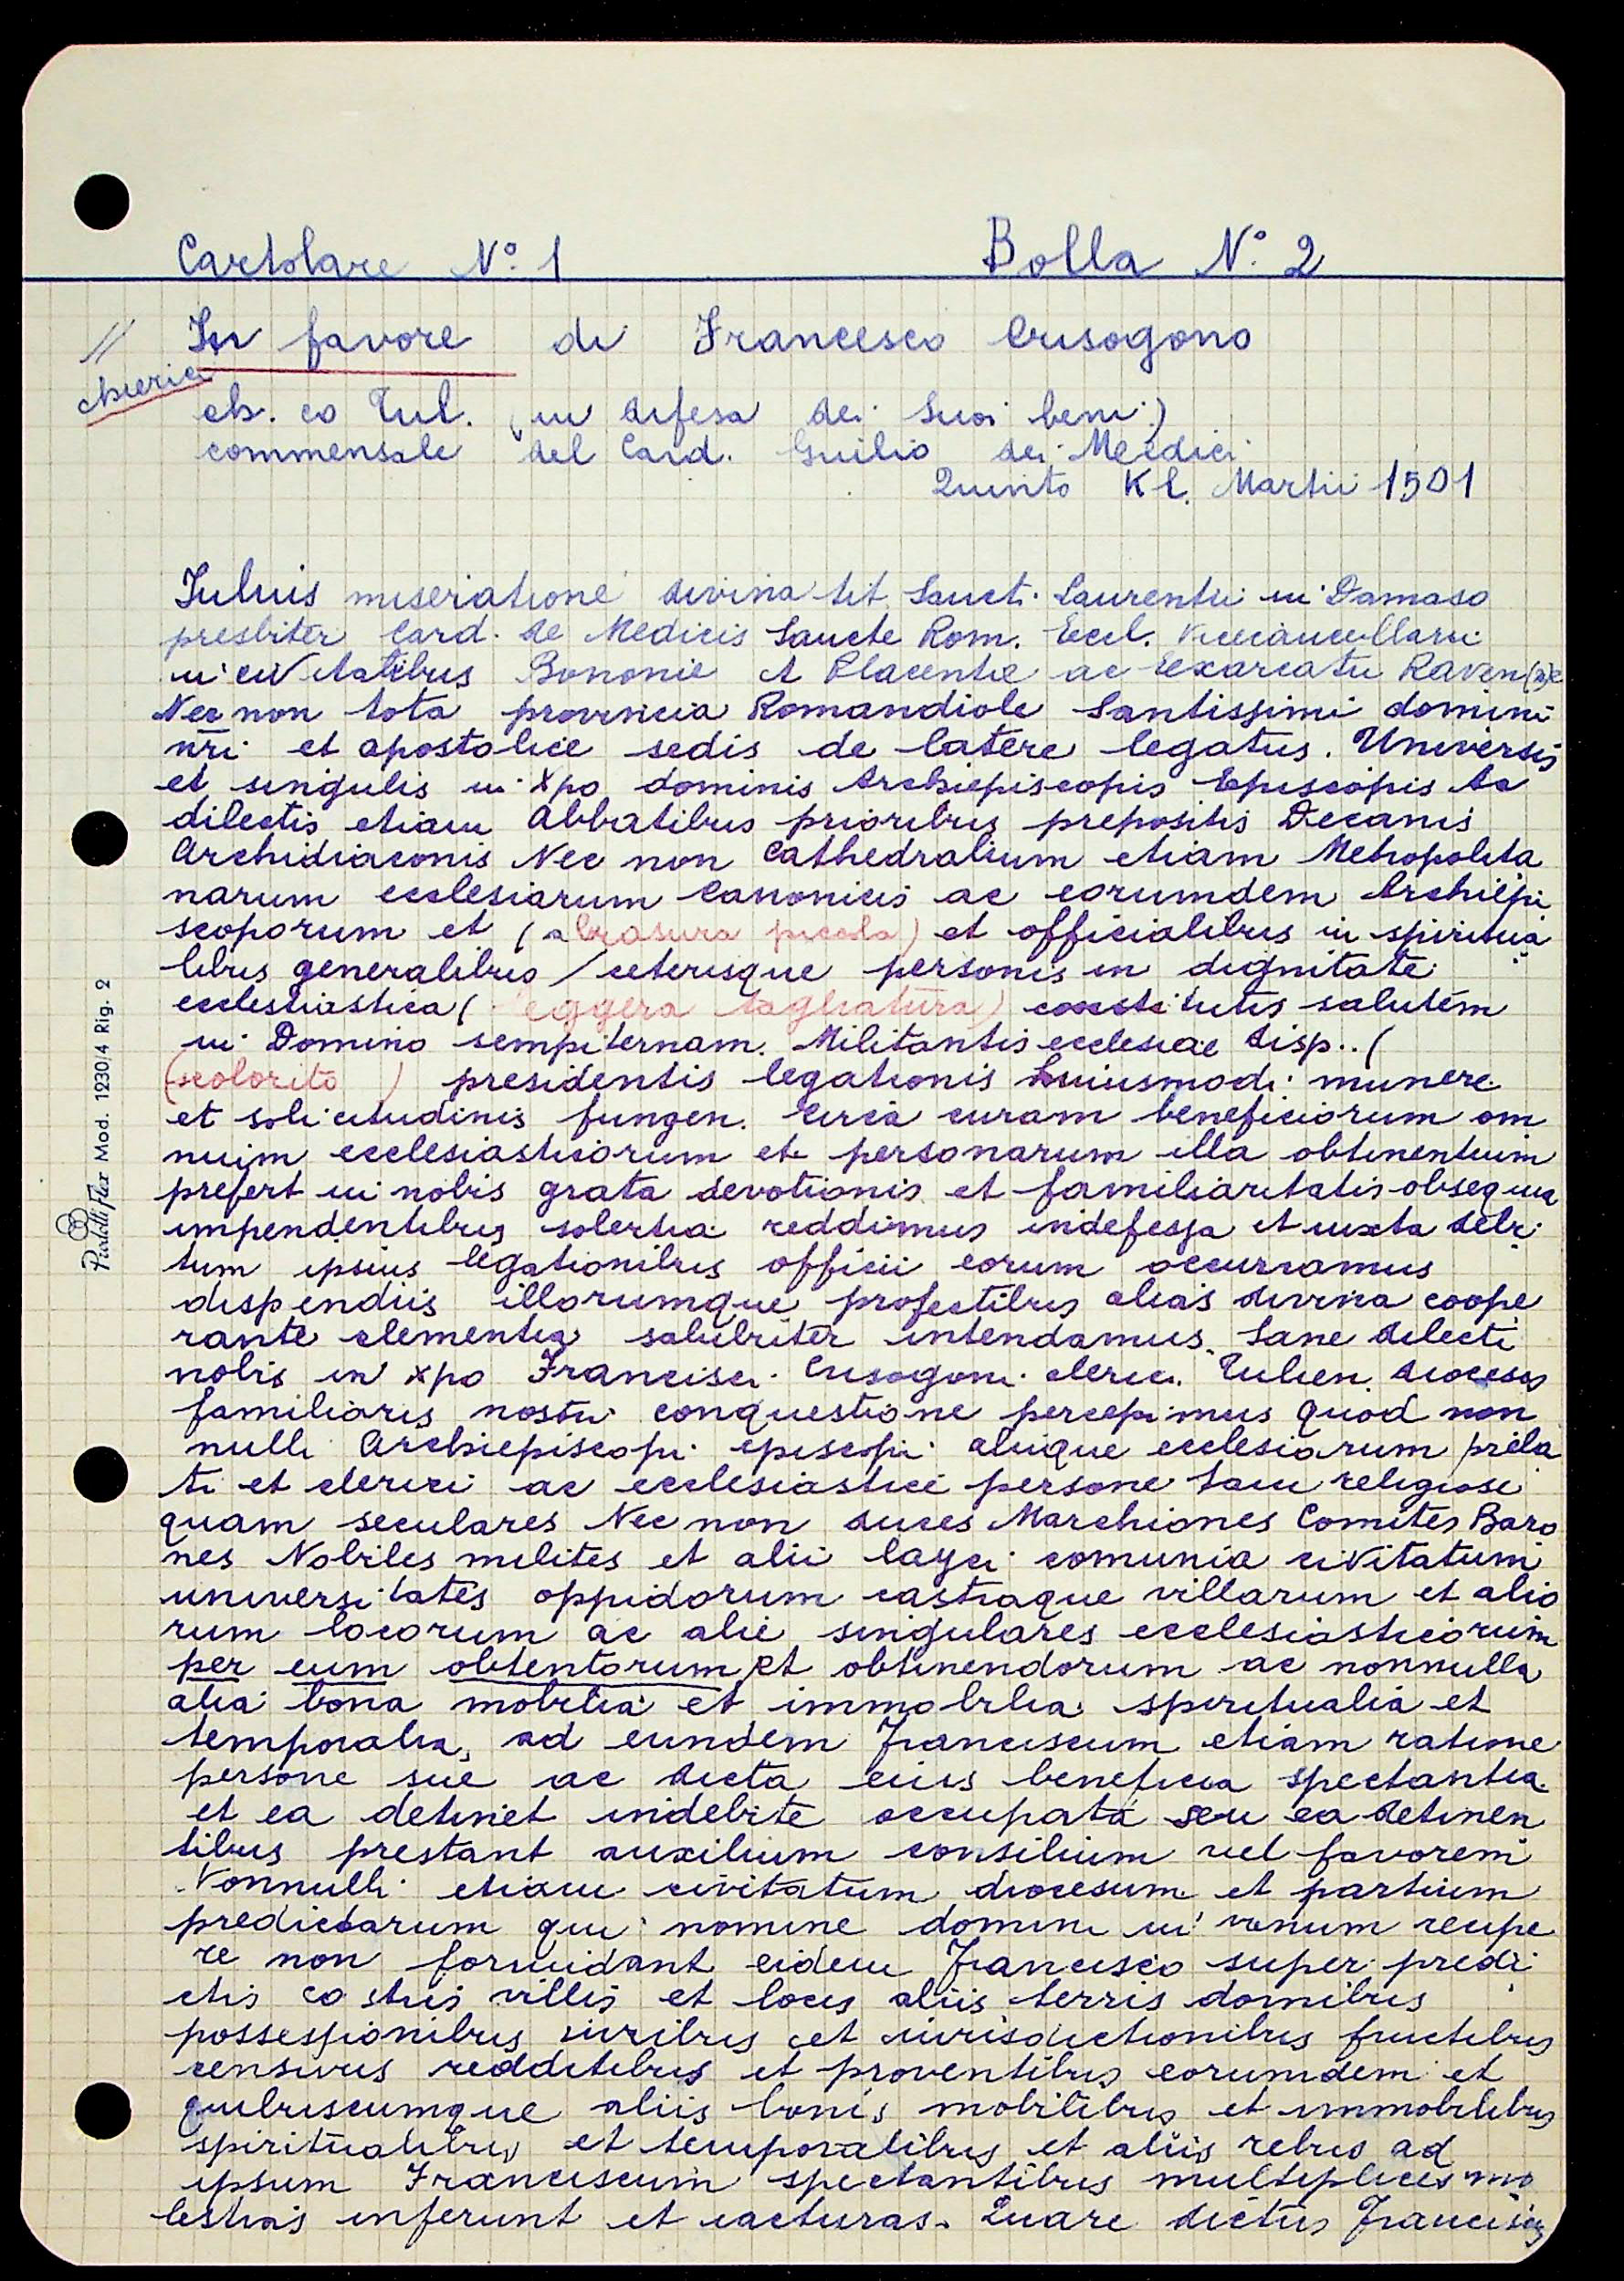 Cartolare N° 1 Bolla N° 2
// In favore di Francesco Crisogono
chierici
ch. co Tul. (in difesa dei suoi beni)
commensale del Card. Guilio dei Medici
Quinto Kl. Martii 1501
Iulius miseratione divina tit. Sancti Laurentii in Damaso
presbiter Card. de Medicis Sancte Rom. Eccl. Vicecancellarii
in civitatibus Bononie et Placentie ac Exarcatu Raven(n)e
Nec non tota provincia Romandiole Santissimi domini
nri et apostolice sedis de latere legatus. Universis
et singulis in Xpo dominis Archiepiscopis Episcopis Ac
dilectis etiam Abbatibus prioribus prepositis Decanis
Archidiaconis Nec non Cathedralium etiam Metropolita
narum ecclesiarum Canonicis ac eorumdem Archiepi
scoporum et (abrasura piccola) et officialibus in spiritua
libus generalibus / ceterisque personis in dignitate
ecclestiastica (leggera tagliatura) constitutis salutem
in Domino sempiternam. Militantis ecclesiae disp.. (
(scolorito) presidentis legationis huiusmodi munere
et solicitudinis fungen. circa curam beneficiorum om
nuim ecclesiasticorum et personarum illa obtinentium
prefert in nobis grata devotionis et familiaritatis obsequia
impendentibus solertia reddimus indefessa et iuxta debi
tum ipsius legationibus officii eorum occurramus
dispendiis illorumque profectibus alias divina coope
rante clementia salubriter intendamus. Sane dilecti
nobis in Xpo Francisci Crisogoni clerici Tulien. diocesis
familiaris nostri conquestione percepimus quod non
nulli Archiepiscopi episcopi aliique ecclesiarum prela
ti et clerici ac ecclesiastice persone tam religiose
quam seculares Nec non duces Marchiones Comites Baro
nes Nobiles milites et alii layci comunia civitatum
universitates oppidorum castraque villarum et alio
rum locorum ac alie singulares ecclesiasticorum
per eum obtentorum et obtinendorum ac nonnulla
alia bona mobilia et immobilia spiritualia et
temporalia, ad eundem Franciscum etiam ratione
persone sue ac dicta eius beneficia spectantia
et ea detinet indebite occupata seu ea detinen
tibus prestant auxilium consilium vel favorem
Nonnulli etiam civitatum diocesum et partium
predictarum qui nomine domini in vanum recipe
re non formidant eidem Francisco super predi
ctis castris villis et locis aliis terris domibus
possessionibus iuribus et iurisdictionibus fructibus
censivus redditibus et proventibus eorumdem et
quibuscumque aliis bonis mobilibus et immobilibus
spiritualibus et temporalibus et aliis rebus ad
ipsum Franciscum spectantibus multiplices mo
lestias inferunt et iacturas. Quare dictus Franciscus
Pratelli Flex Mod. 1230/4 Rig. 2